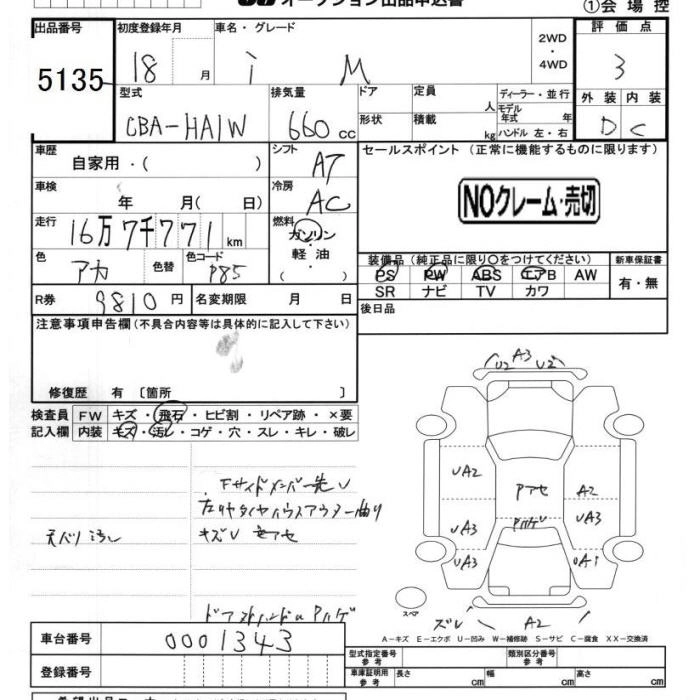 オークション出品申込書 ①会場控
出品番号 初度登録年月 車名・グレード 2WD ・ 4WD 評価点
5135 18 月 i M 3
型式 排気量 ドア 定員 人 ディーラー・並行 外装 内装
CBA-HA1W 660 cc 形状 積載 kg モデル年式 年 ハンドル 左・右 D C
車歴 自家用・( ) シフト AT セールスポイント (正常に機能するものに限ります)
車検 年 月( 日) 冷房 AC NOクレーム・売切
走行 16万7千771 km 燃料 ガソリン・軽油・( )
色 アカ 色替 色コード P85 装備品 (純正品に限り○をつけてください) 新車保証書
PS PW ABS エアB AW 有・無
R券 9810 円 名変期限 月 日 SR ナビ TV カワ
注意事項申告欄(不具合内容等は具体的に記入して下さい) 後日品
修復歴 有 〔箇所 〕
U2 A3 U2
検査員 FW キズ・飛石・ヒビ割・リペア跡・×要
記入欄 内装 キズ・汚レ・コゲ・穴・スレ・キレ・破レ
UA2 Pアセ A2
UA3 Pハゲ UA3
UA3 UA1
スペア
ズレ A2
車台番号 0001343 A-キズ E-エクボ U-凹み W-補修跡 S-サビ C-腐食 XX-交換済
登録番号 型式指定番号 参考 類別区分番号 参考
車庫証明用 参考 長さ cm 幅 cm 高さ cm